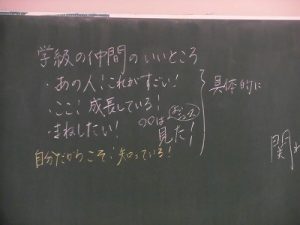 学級の仲間のいいところ
・あの人!これがすごい!
・ここ!成長している!
・まねしたい!
〇〇は 見た!
自分だからこそ!知っている!
具体的に
関